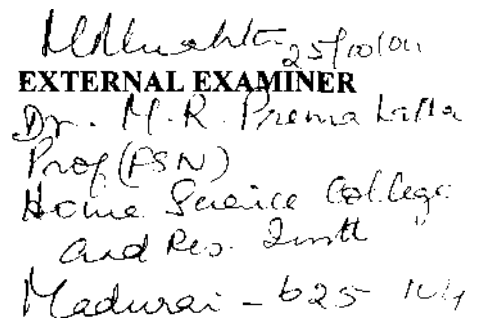 25/10/04
EXTERNAL EXAMINER
Dr. M. R. Prema Latha
Prof (FSN)
Home Science College
and Res. Instt
Madurai - 625 104